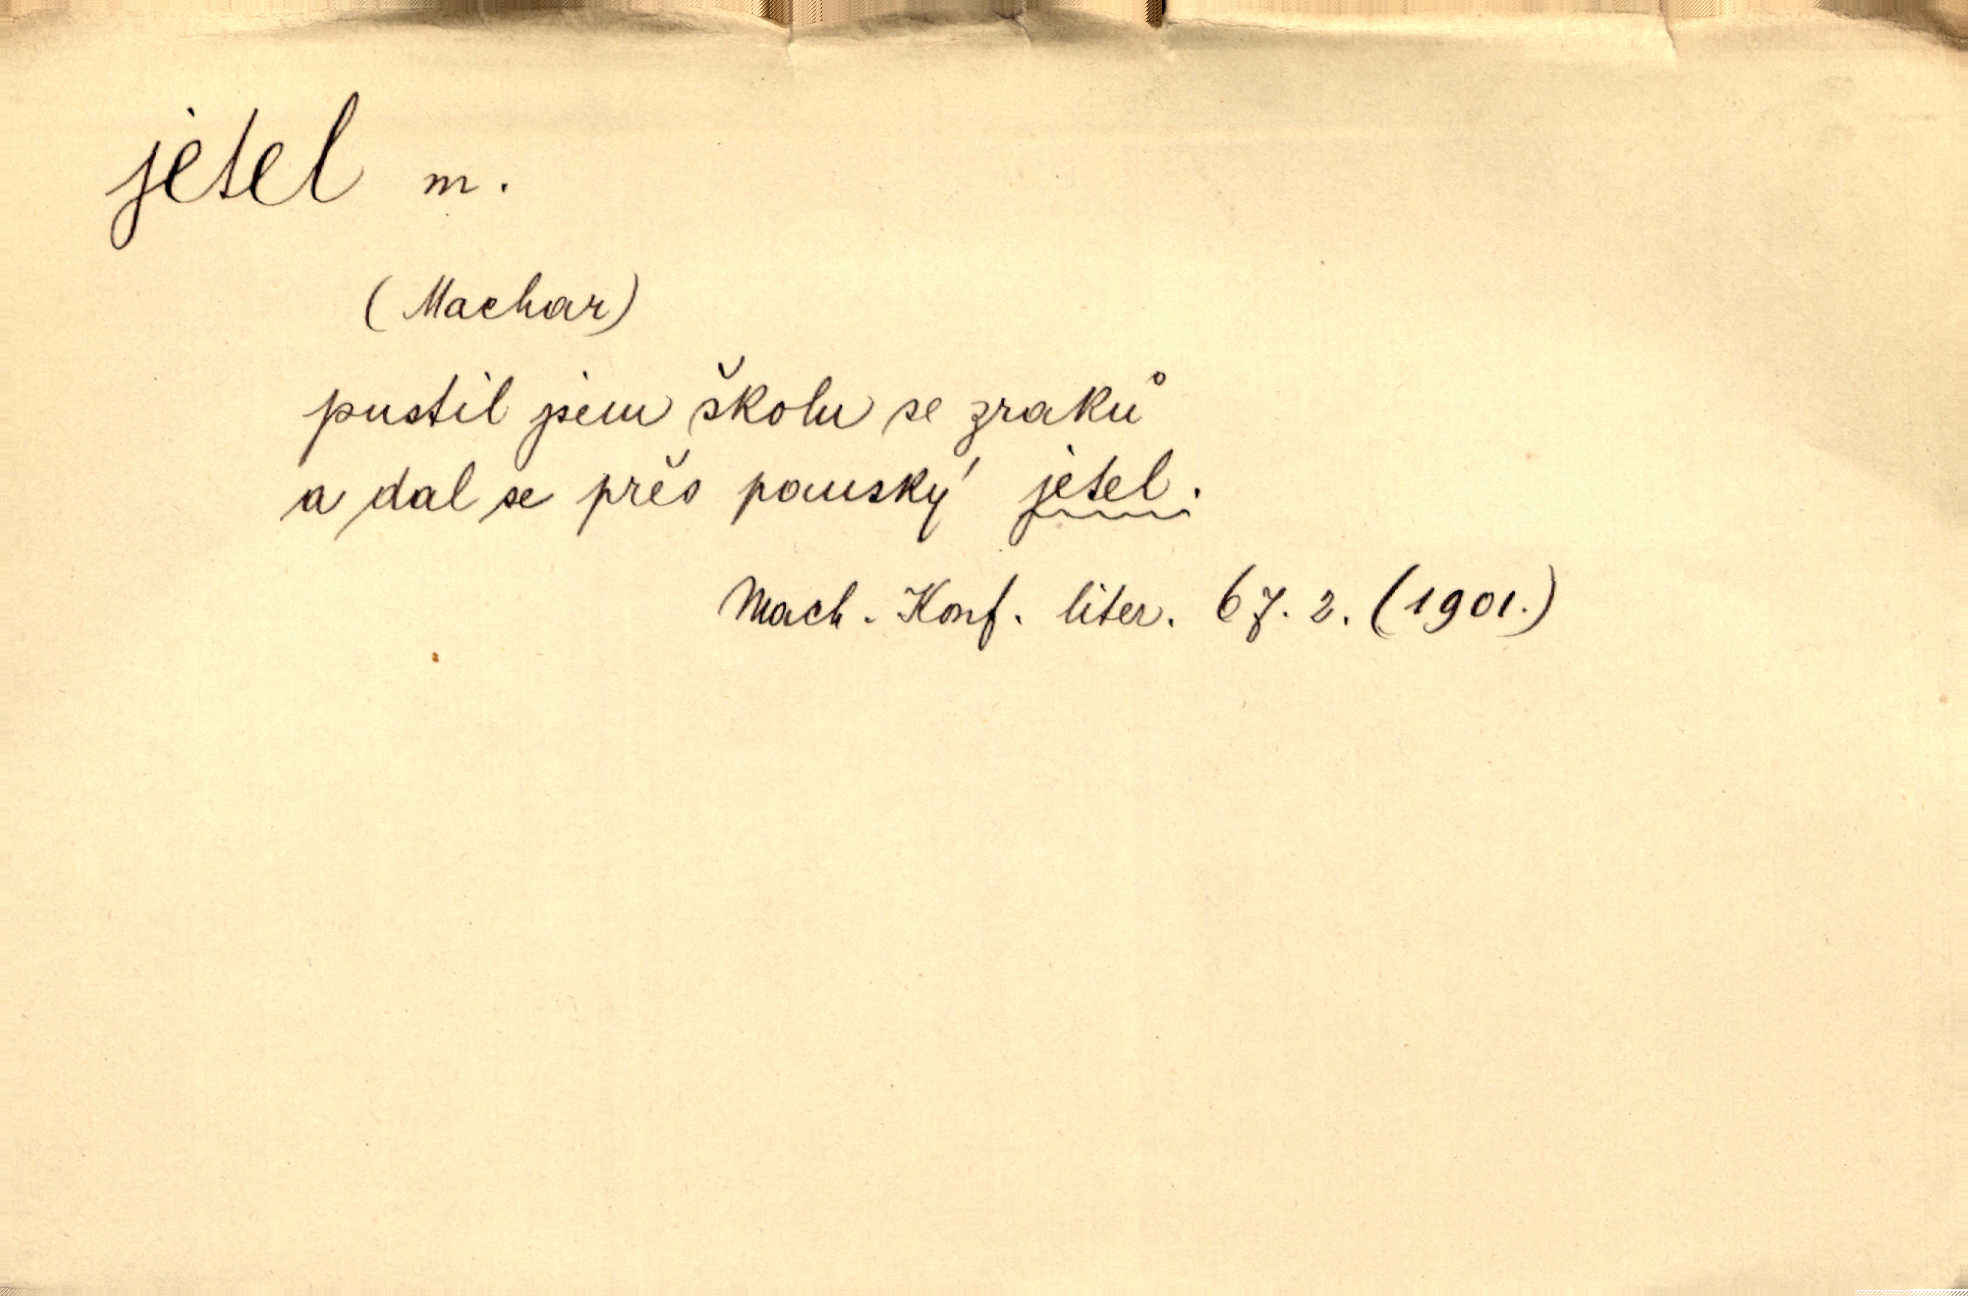 jetel m.
(Machar)
pustil jsem školu se zraků
a dal se přes panský jetel.
Mach. Konf. liter. 67. 2. (1901.)